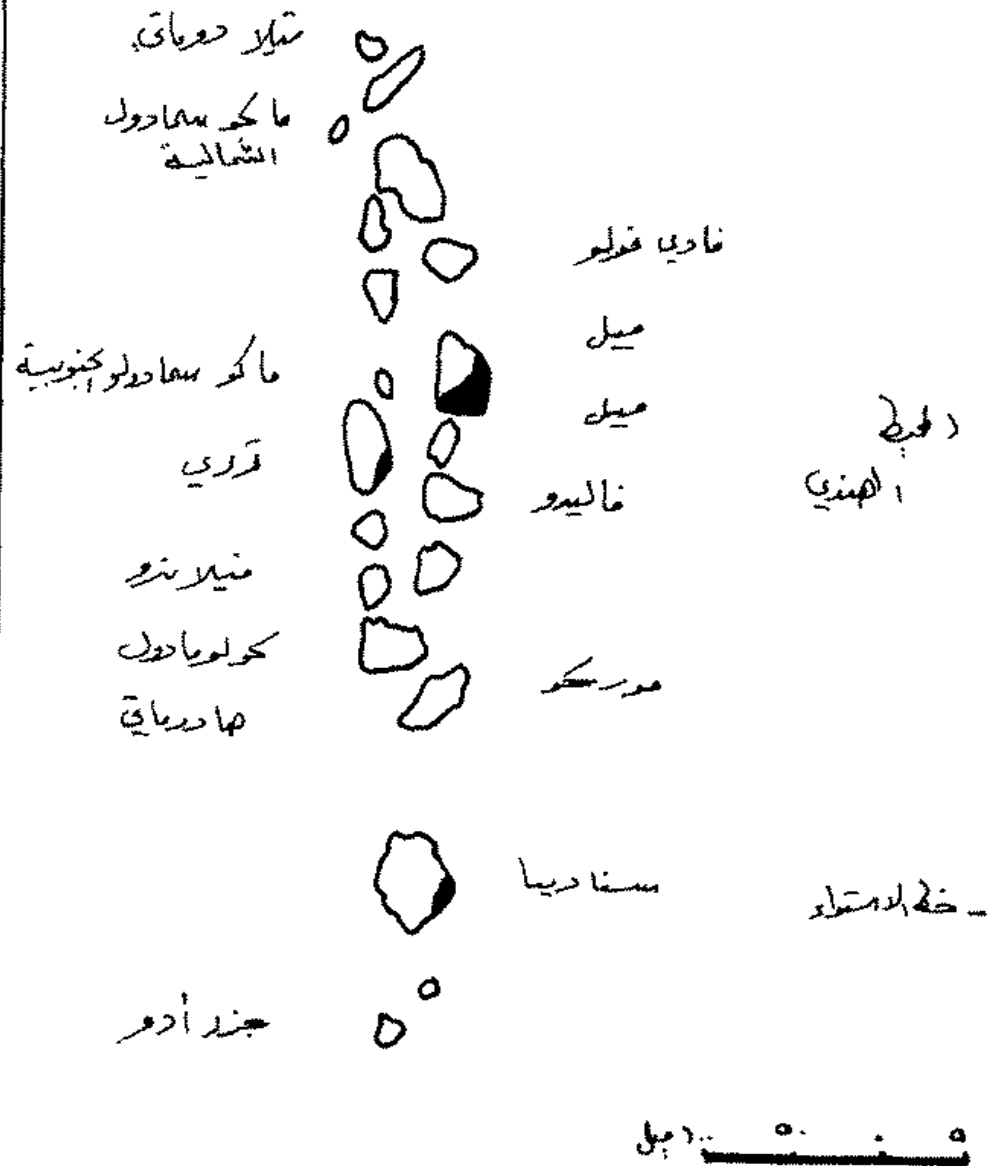 تيلا دوماتي
ماكو سمادول
الشمالية
فادي فولو
ميل
ماكو سمادولو الجنوبية
ميل
المحيط
الهندي
قرري
فاليدو
منيلاندو
كولومادول
مورسكو
هادرماتي
سفاديبا
خط الاستواء
جزر أدو
١٠٠ ميل ٥٠ ٠ ٥